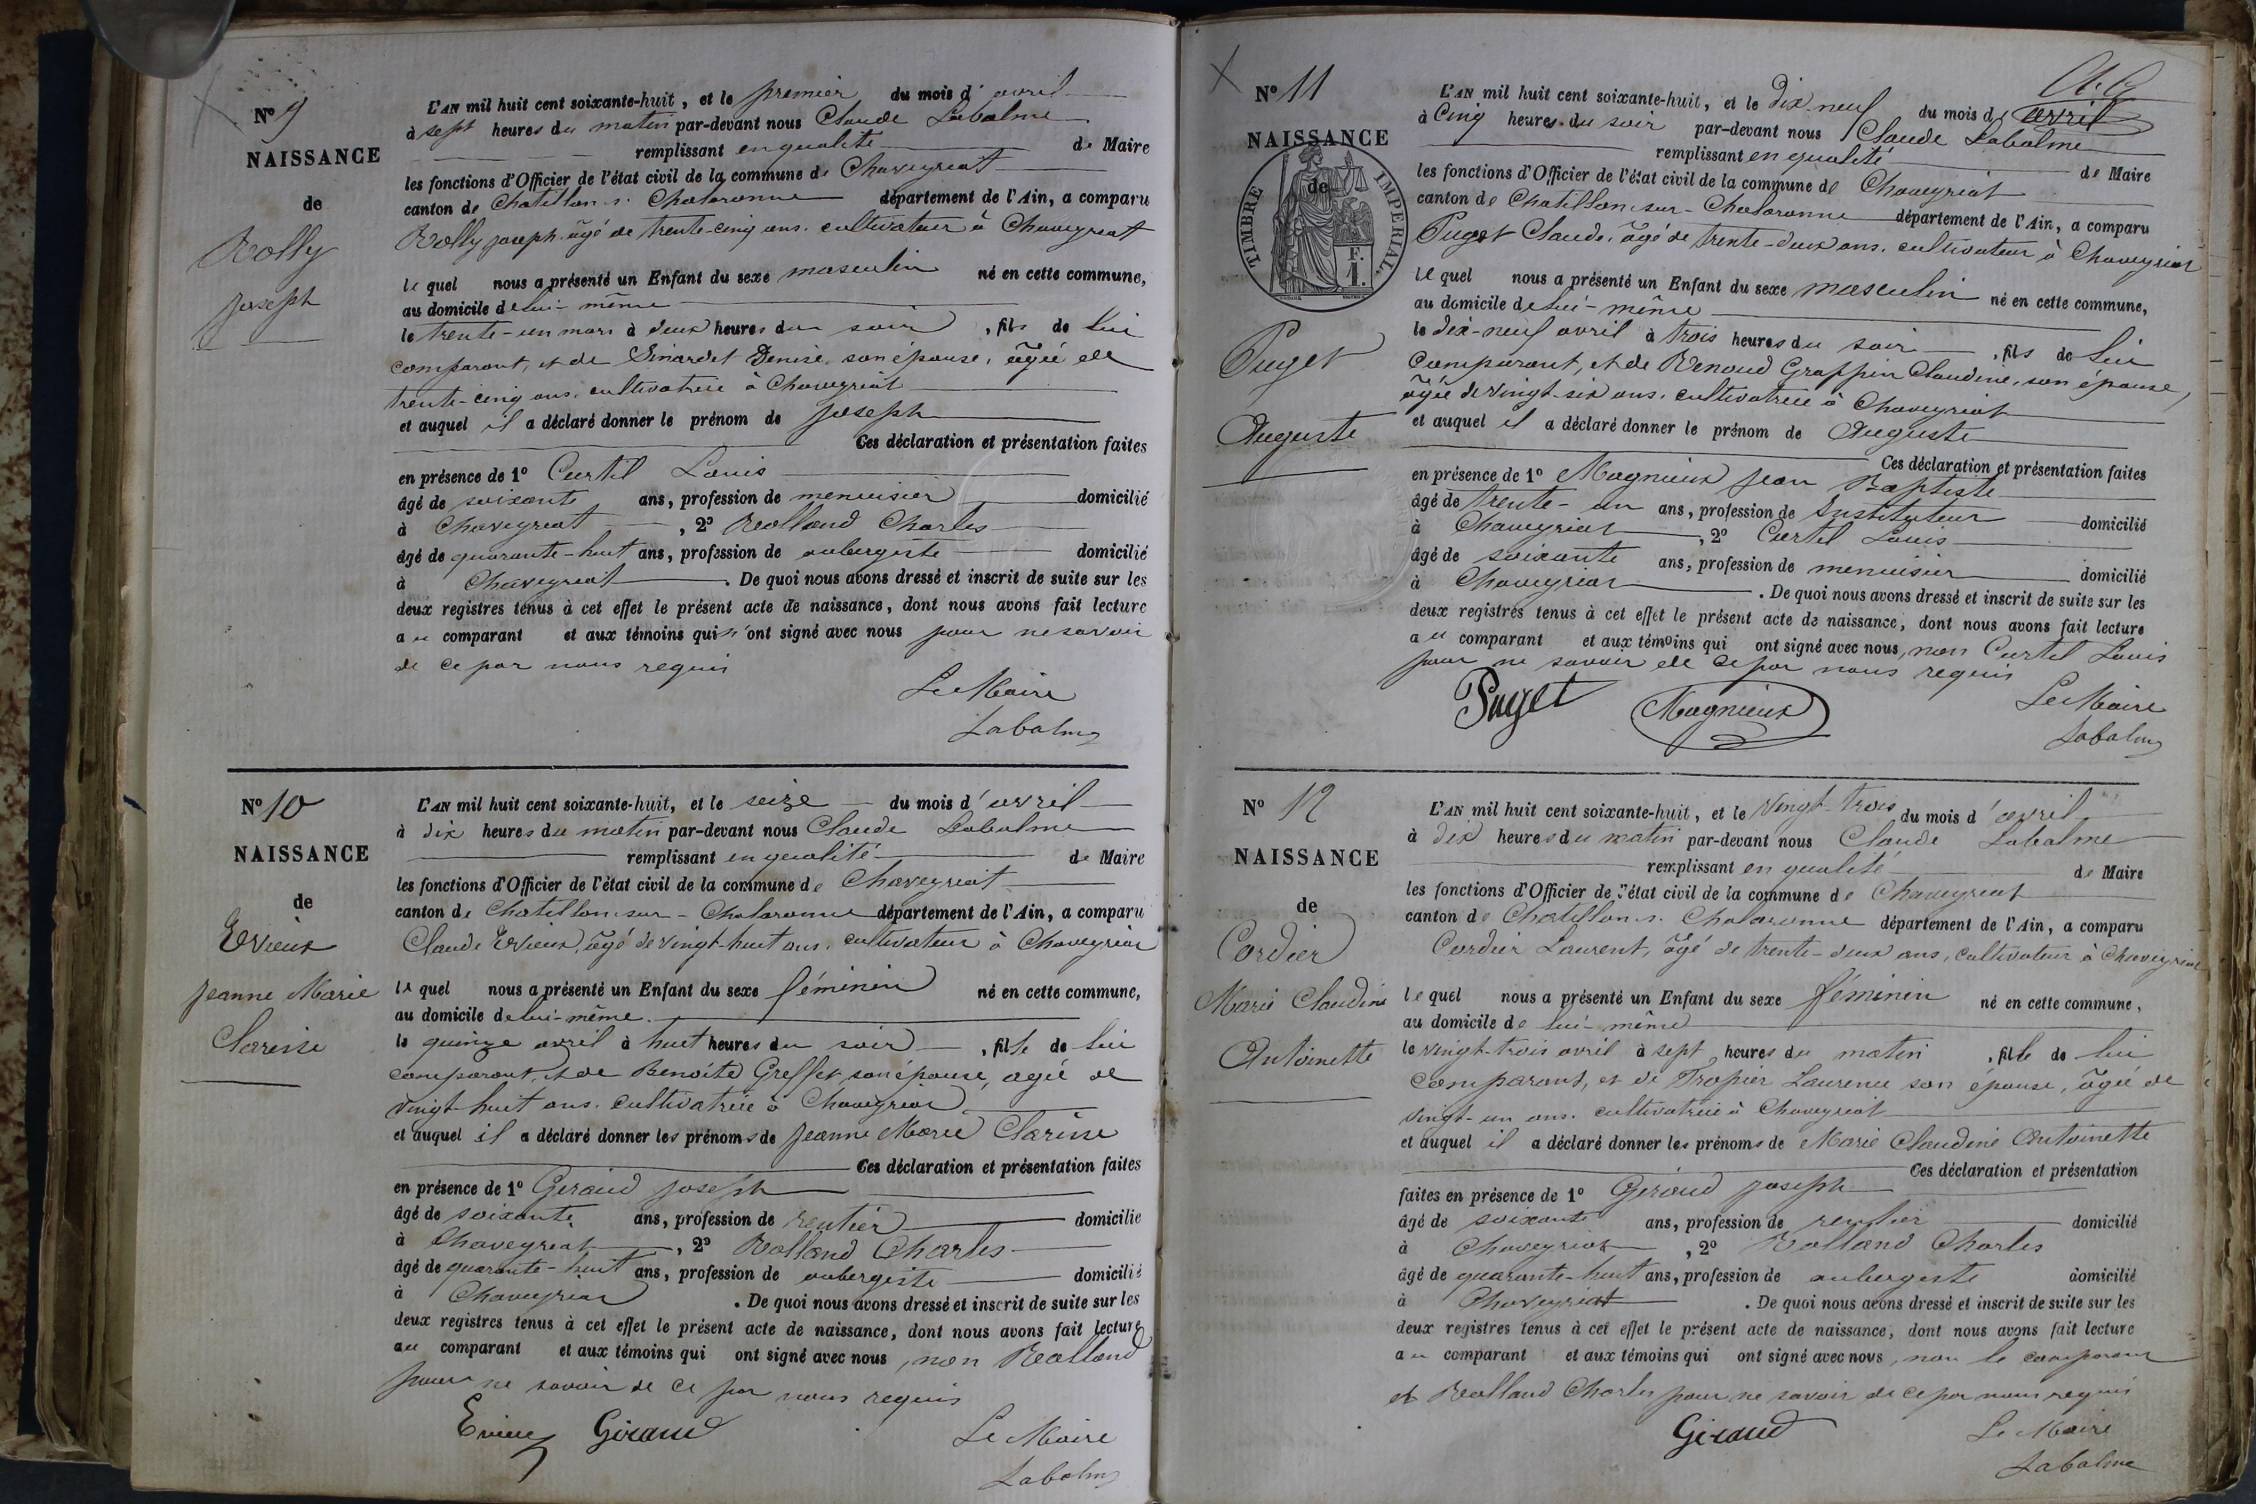 N° 9
NAISSANCE
de
Rolly
Joseph
L'AN mil huit cent soixante-huit, et le premier du mois d'avril
à sept heures du matin par-devant nous Claude Labalme
remplissant en qualité de Maire
les fonctions d'Officier de l'état civil de la commune de Chaveyriat
canton de Chatillon s. Chalaronne département de l'Ain, a comparu
Rolly Joseph âgé de trente-cinq ans. cultivateur à Chaveyriat
lequel nous a présenté un Enfant du sexe masculin né en cette commune,
au domicile de lui-même
le trente-un mars à deux heures du soir, fils de lui
comparant, et de Sinardet Denise son épouse, âgée de
trente-cinq ans. cultivatrice à Chaveyriat
et auquel il a déclaré donner le prénom de Joseph
Ces déclaration et présentation faites
en présence de 1° Curtil Louis
âgé de soixante ans, profession de menuisier domicilié
à Chaveyriat, 2° Rolland Charles
âgé de quarante-huit ans, profession de aubergiste domicilié
à Chaveyriat. De quoi nous avons dressé et inscrit de suite sur les
deux registres tenus à cet effet le présent acte de naissance, dont nous avons fait lecture
au comparant et aux témoins qui n'ont signé avec nous pour ne savoir
de ce par nous requis
Le Maire
Labalme
N° 10
NAISSANCE
de
Evieux
Jeanne Marie
Clarisse
L'AN mil huit cent soixante-huit, et le seize du mois d'avril
à dix heures du matin par-devant nous Claude Labalme
remplissant en qualité de Maire
les fonctions d'Officier de l'état civil de la commune de Chaveyriat
canton de Chatillon-sur-Chalaronne département de l'Ain, a comparu
Claude Evieux, âgé de vingt-huit ans. cultivateur à Chaveyriat
lequel nous a présenté un Enfant du sexe féminin né en cette commune,
au domicile de lui-même.
le quinze avril à huit heures du soir, fille de lui
comparant, et de Benoîte Greffet son épouse, agée de
vingt-huit ans. cultivatrice à Chaveyriat
et auquel il a déclaré donner les prénoms de Jeanne Marie Clarisse
Ces déclaration et présentation faites
en présence de 1° Geraud Joseph
âgé de soixante ans, profession de rentier domicilié
à Chaveyriat, 2° Rolland Charles
âgé de quarante-huit ans, profession de aubergiste domicilié
à Chaveyriat. De quoi nous avons dressé et inscrit de suite sur les
deux registres tenus à cet effet le présent acte de naissance, dont nous avons fait lecture
au comparant et aux témoins qui ont signé avec nous, non Rolland
pour ne savoir de ce par nous requis
Evieux Giraud
Le Maire
Labalme
N° 11
NAISSANCE
de
TIMBRE IMPÉRIAL.
F.
1.
Puget
Auguste
L'AN mil huit cent soixante-huit, et le dix-neuf du mois d avril
à cinq heures du soir par-devant nous Claude Labalme
remplissant en qualité de Maire
les fonctions d'Officier de l'état civil de la commune de Chaveyriat
canton de Chatillon-sur-Chalaronne département de l'Ain, a comparu
Puget Claude. âgé de trente-deux ans. cultivateur à Chaveyriat
lequel nous a présenté un Enfant du sexe masculin né en cette commune,
au domicile de lui-même
le dix-neuf avril à trois heures du soir, fils de lui
comparant, et de Renoud Grappin Claudine, son épouse,
âgée de vingt-six ans. cultivatrice à Chaveyriat
et auquel il a déclaré donner le prénom de Auguste
Ces déclaration et présentation faites
en présence de 1° Magnieux Jean Baptiste
âgé de trente-un ans, profession de Instituteur domicilié
à Chaveyriat, 2° Curtil Louis
âgé de soixante ans, profession de menuisier domicilié
à Chaveyriat. De quoi nous avons dressé et inscrit de suite sur les
deux registres tenus à cet effet le présent acte de naissance, dont nous avons fait lecture
au comparant et aux témoins qui ont signé avec nous, non Curtil Louis
pour ne savoir de ce par nous requis
Puget Magnieux
Le Maire
Labalme
N° 12
NAISSANCE
de
Cordier
Marie Claudine
Antoinette
L'AN mil huit cent soixante-huit, et le vingt-trois du mois d'avril
à dix heures du matin par-devant nous Claude Labalme
remplissant en qualité de Maire
les fonctions d'Officier de l'état civil de la commune de Chaveyriat
canton de Chatillon s. Chalaronne département de l'Ain, a comparu
Cordier Laurent, âgé de trente-deux ans, cultivateur à Chaveyriat
lequel nous a présenté un Enfant du sexe féminin né en cette commune,
au domicile de lui-même
le vingt-trois avril à sept heures du matin, fille de lui
comparant, et de Tropier Laurence son épouse, âgée de
vingt-un ans. cultivatrice à Chaveyriat
et auquel il a déclaré donner les prénoms de Marie Claudine Antoinette
Ces déclaration et présentation
faites en présence de 1° Geraud Joseph
âgé de soixante ans, profession de rentier domicilié
à Chaveyriat, 2° Rolland Charles
âgé de quarante-huit ans, profession de aubergiste domicilié
à Chaveyriat. De quoi nous avons dressé et inscrit de suite sur les
deux registres tenus à cet effet le présent acte de naissance, dont nous avons fait lecture
au comparant et aux témoins qui ont signé avec nous, non le comparant
et Rolland Charles pour ne savoir de ce par nous requis
Giraud
Le Maire
Labalme